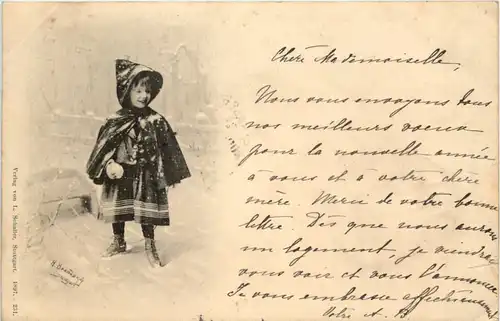 Chère Mademoiselle,
Nous vous envoyons tous
nos meilleurs voeux
pour la nouvelle année
à vous et à votre chère
mère. Merci de votre bonne
lettre. Dès que nous aurons
un logement, je viendrai
vous voir et vous l'annoncer
Je vous embrasse affectueusement
Votre A. B
Verlag von L. Schaller, Stuttgart. 1897. 251.
Stuttgart